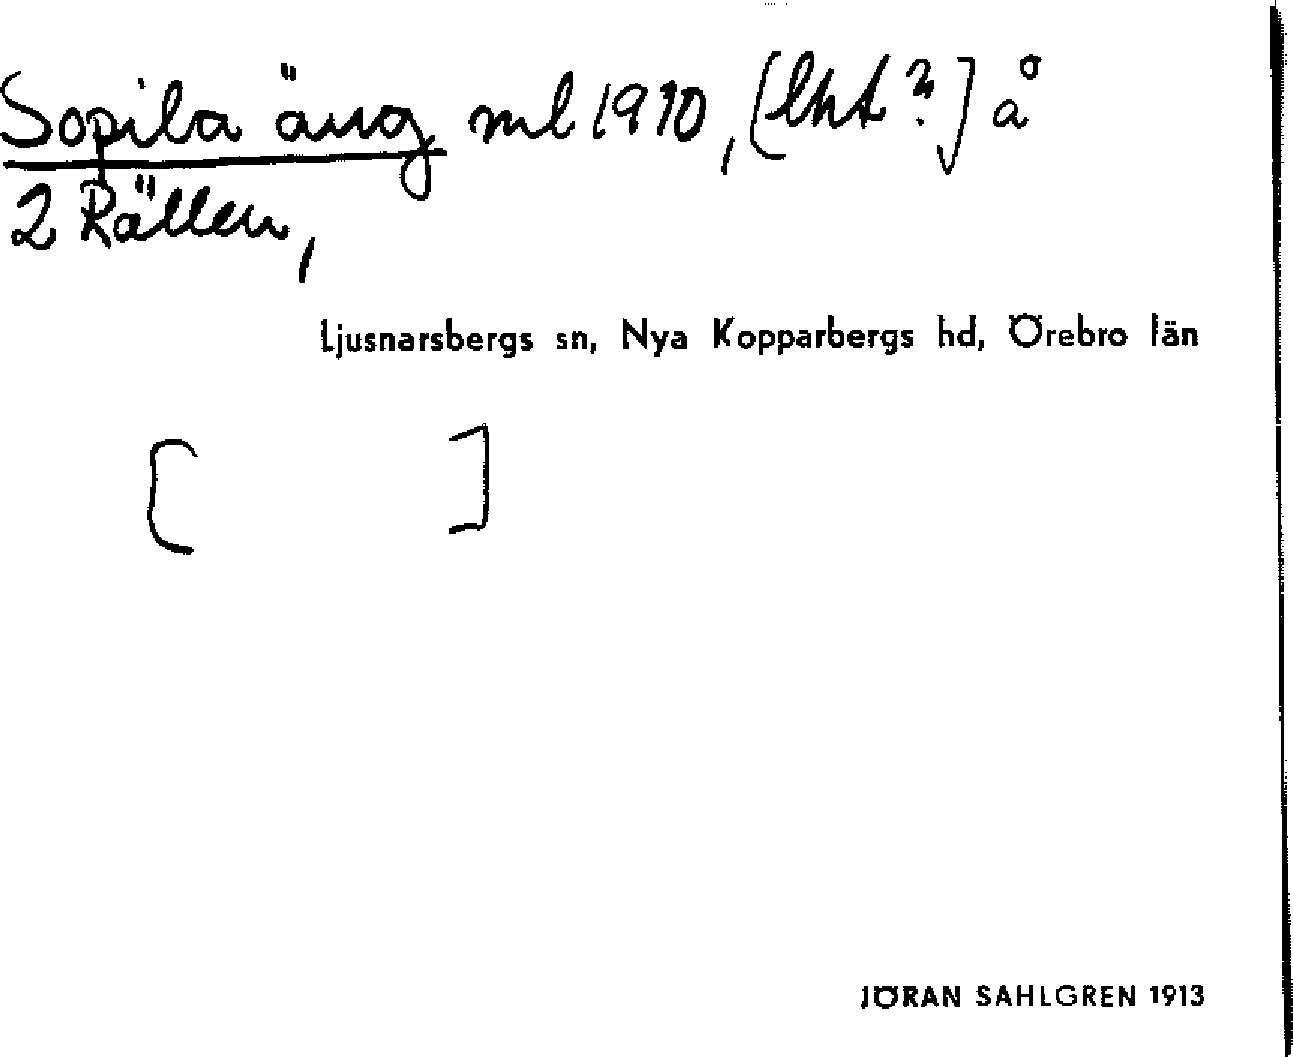 Sopila äng ml 1910, [lht?] å
2 Rällen,
Ljusnarsbergs sn, Nya Kopparbergs hd, Örebro län
[ ]
JÖRAN SAHLGREN 1913